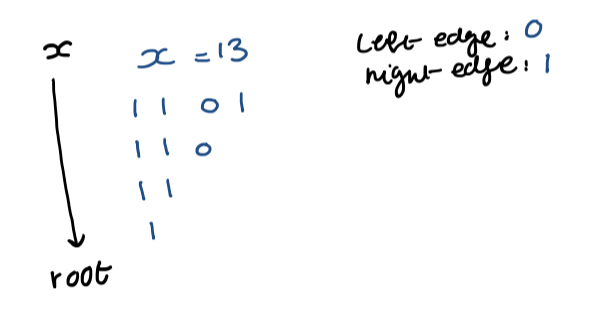 x
x = 13
left edge: 0
right edge: 1
1 1 0 1
1 1 0
1 1
1
root